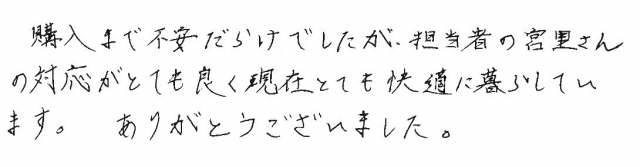 購入まで不安だらけでしたが、担当者の宮里さん
の対応がとても良く現在とても快適に暮らしてい
ます。 ありがとうございました。